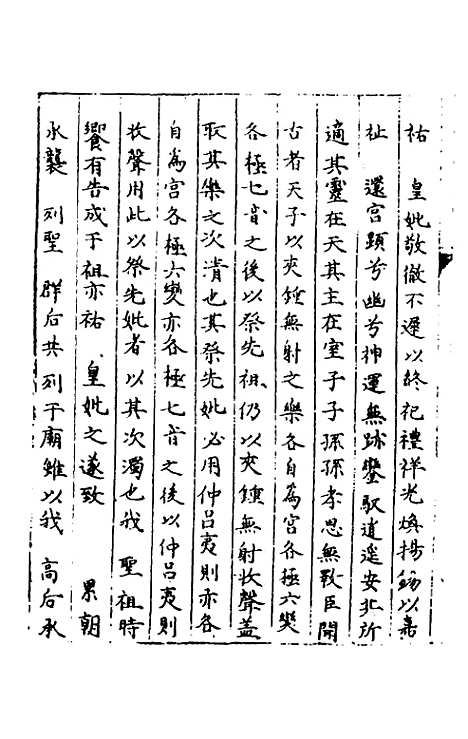 祜 皇妣敬徹不遲以終祀禮祥光煥揚錫以嘉
祉 還宮顕兮幽兮神運無跡鑾馭逍遥安北所
適其靈在天其主在室子子孫孫孝思無斁臣開
古者天子以夾鍾無射之樂各自為宮各極六變
各極七音之後以祭先祖仍以夾鍾無射收聲蓋
取其樂之次清也其祭先妣必用仲吕夷則亦各
自為宮各極六變亦各極七音之後以仲吕夷則
收聲用此以祭先妣者以其次濁也我 聖祖時
饗有告成于祖亦祐 皇妣之遂致 累朝
承襲 列聖 群后共列于廟雖以我 高后承